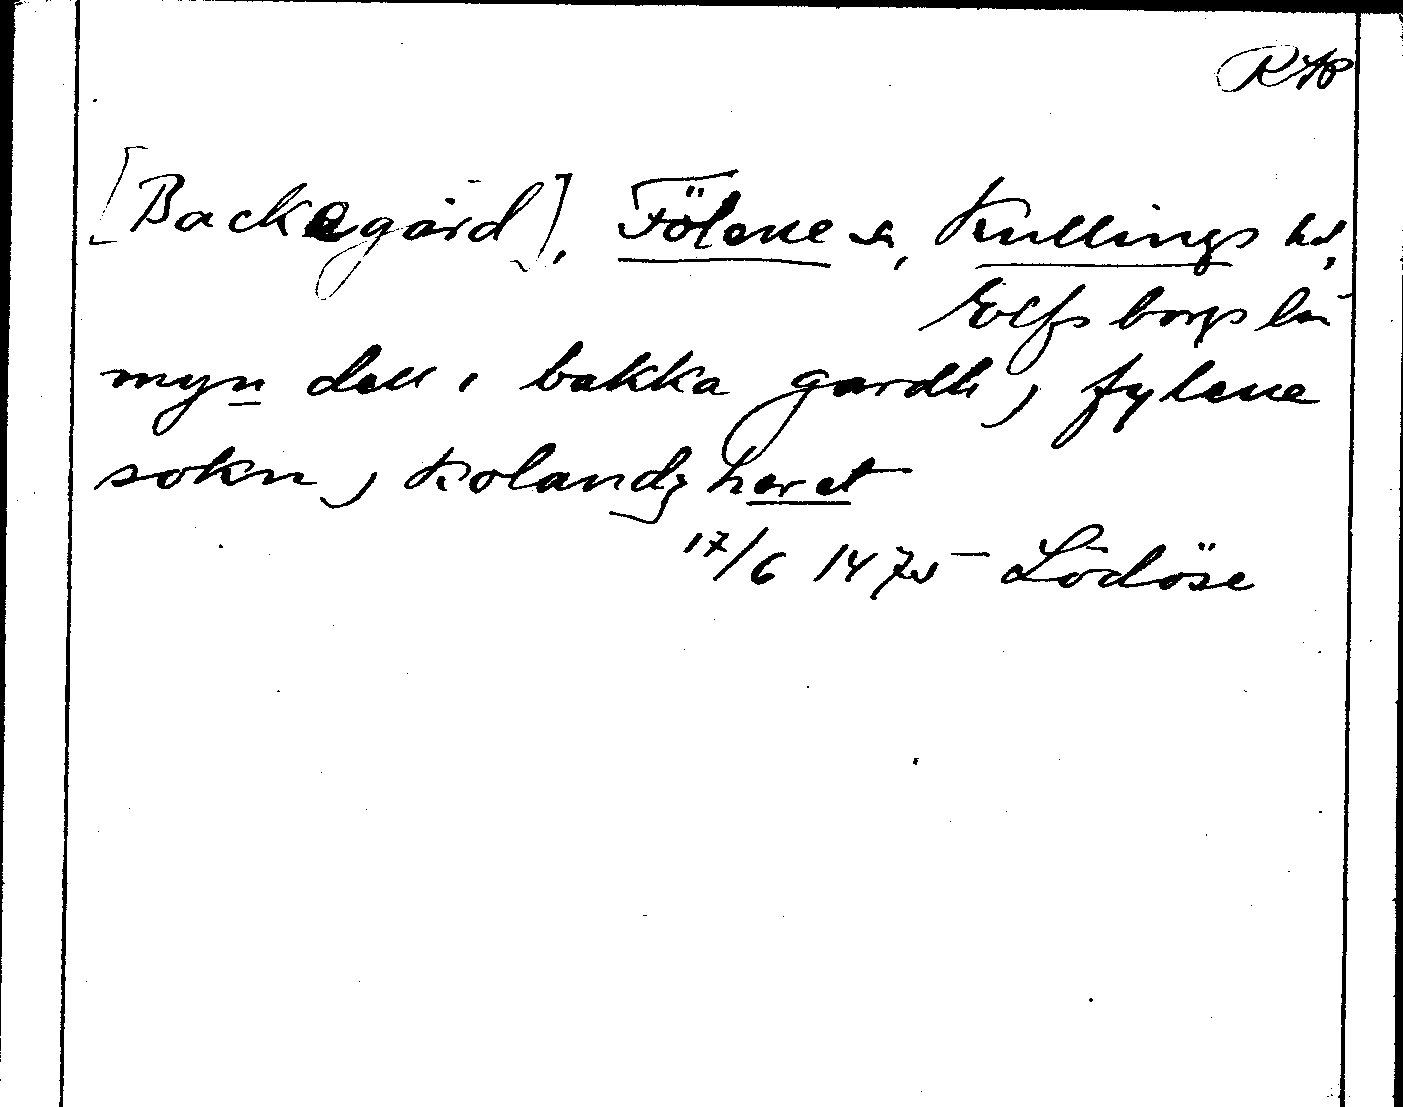 RAP
[Backegård], Fölene sn, Kullings hd,
Elfsborgs län
myn dell i bakka gardh, fylene
sokn, kolandz heret
17/6 1475 Lödöse